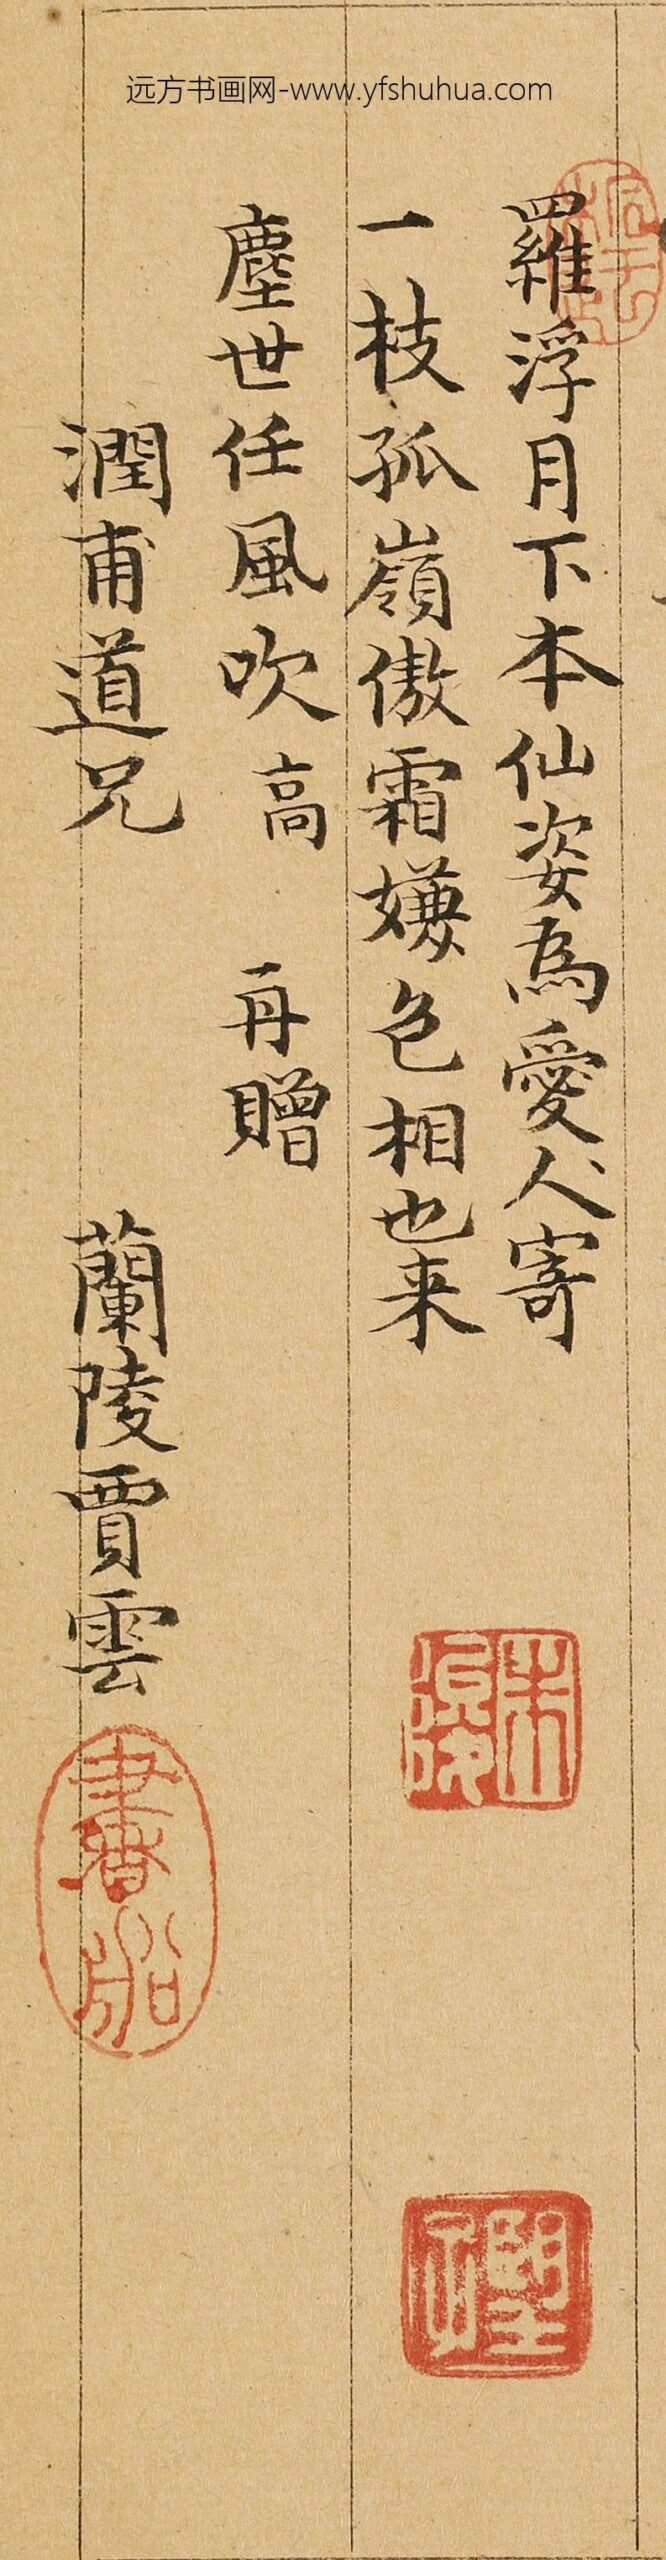 远方书画网-www.yfshuhua.com
羅浮月下本仙姿為愛人寄
一枝孤嶺傲霜嫌色相也来
塵世任風吹高 再贈
潤甫道兄 蘭陵賈雲
書船